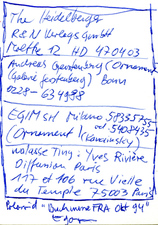 The Heidelberger
R&N Verlags GmbH
12 HD 470403
Andreas Gerstenberg (Ornament)
(Galerie Gerstenberg) Bonn
0228-634988
EGIMSH Milano 58355755
od. 5407435
(Ornament / Kavcinsky)
Walasse Ting: Yves Rivière
Diffusion Paris
117 et 106 rue Vielle
du Temple 75003 Paris
"Buchmesse FRA Okt 94"